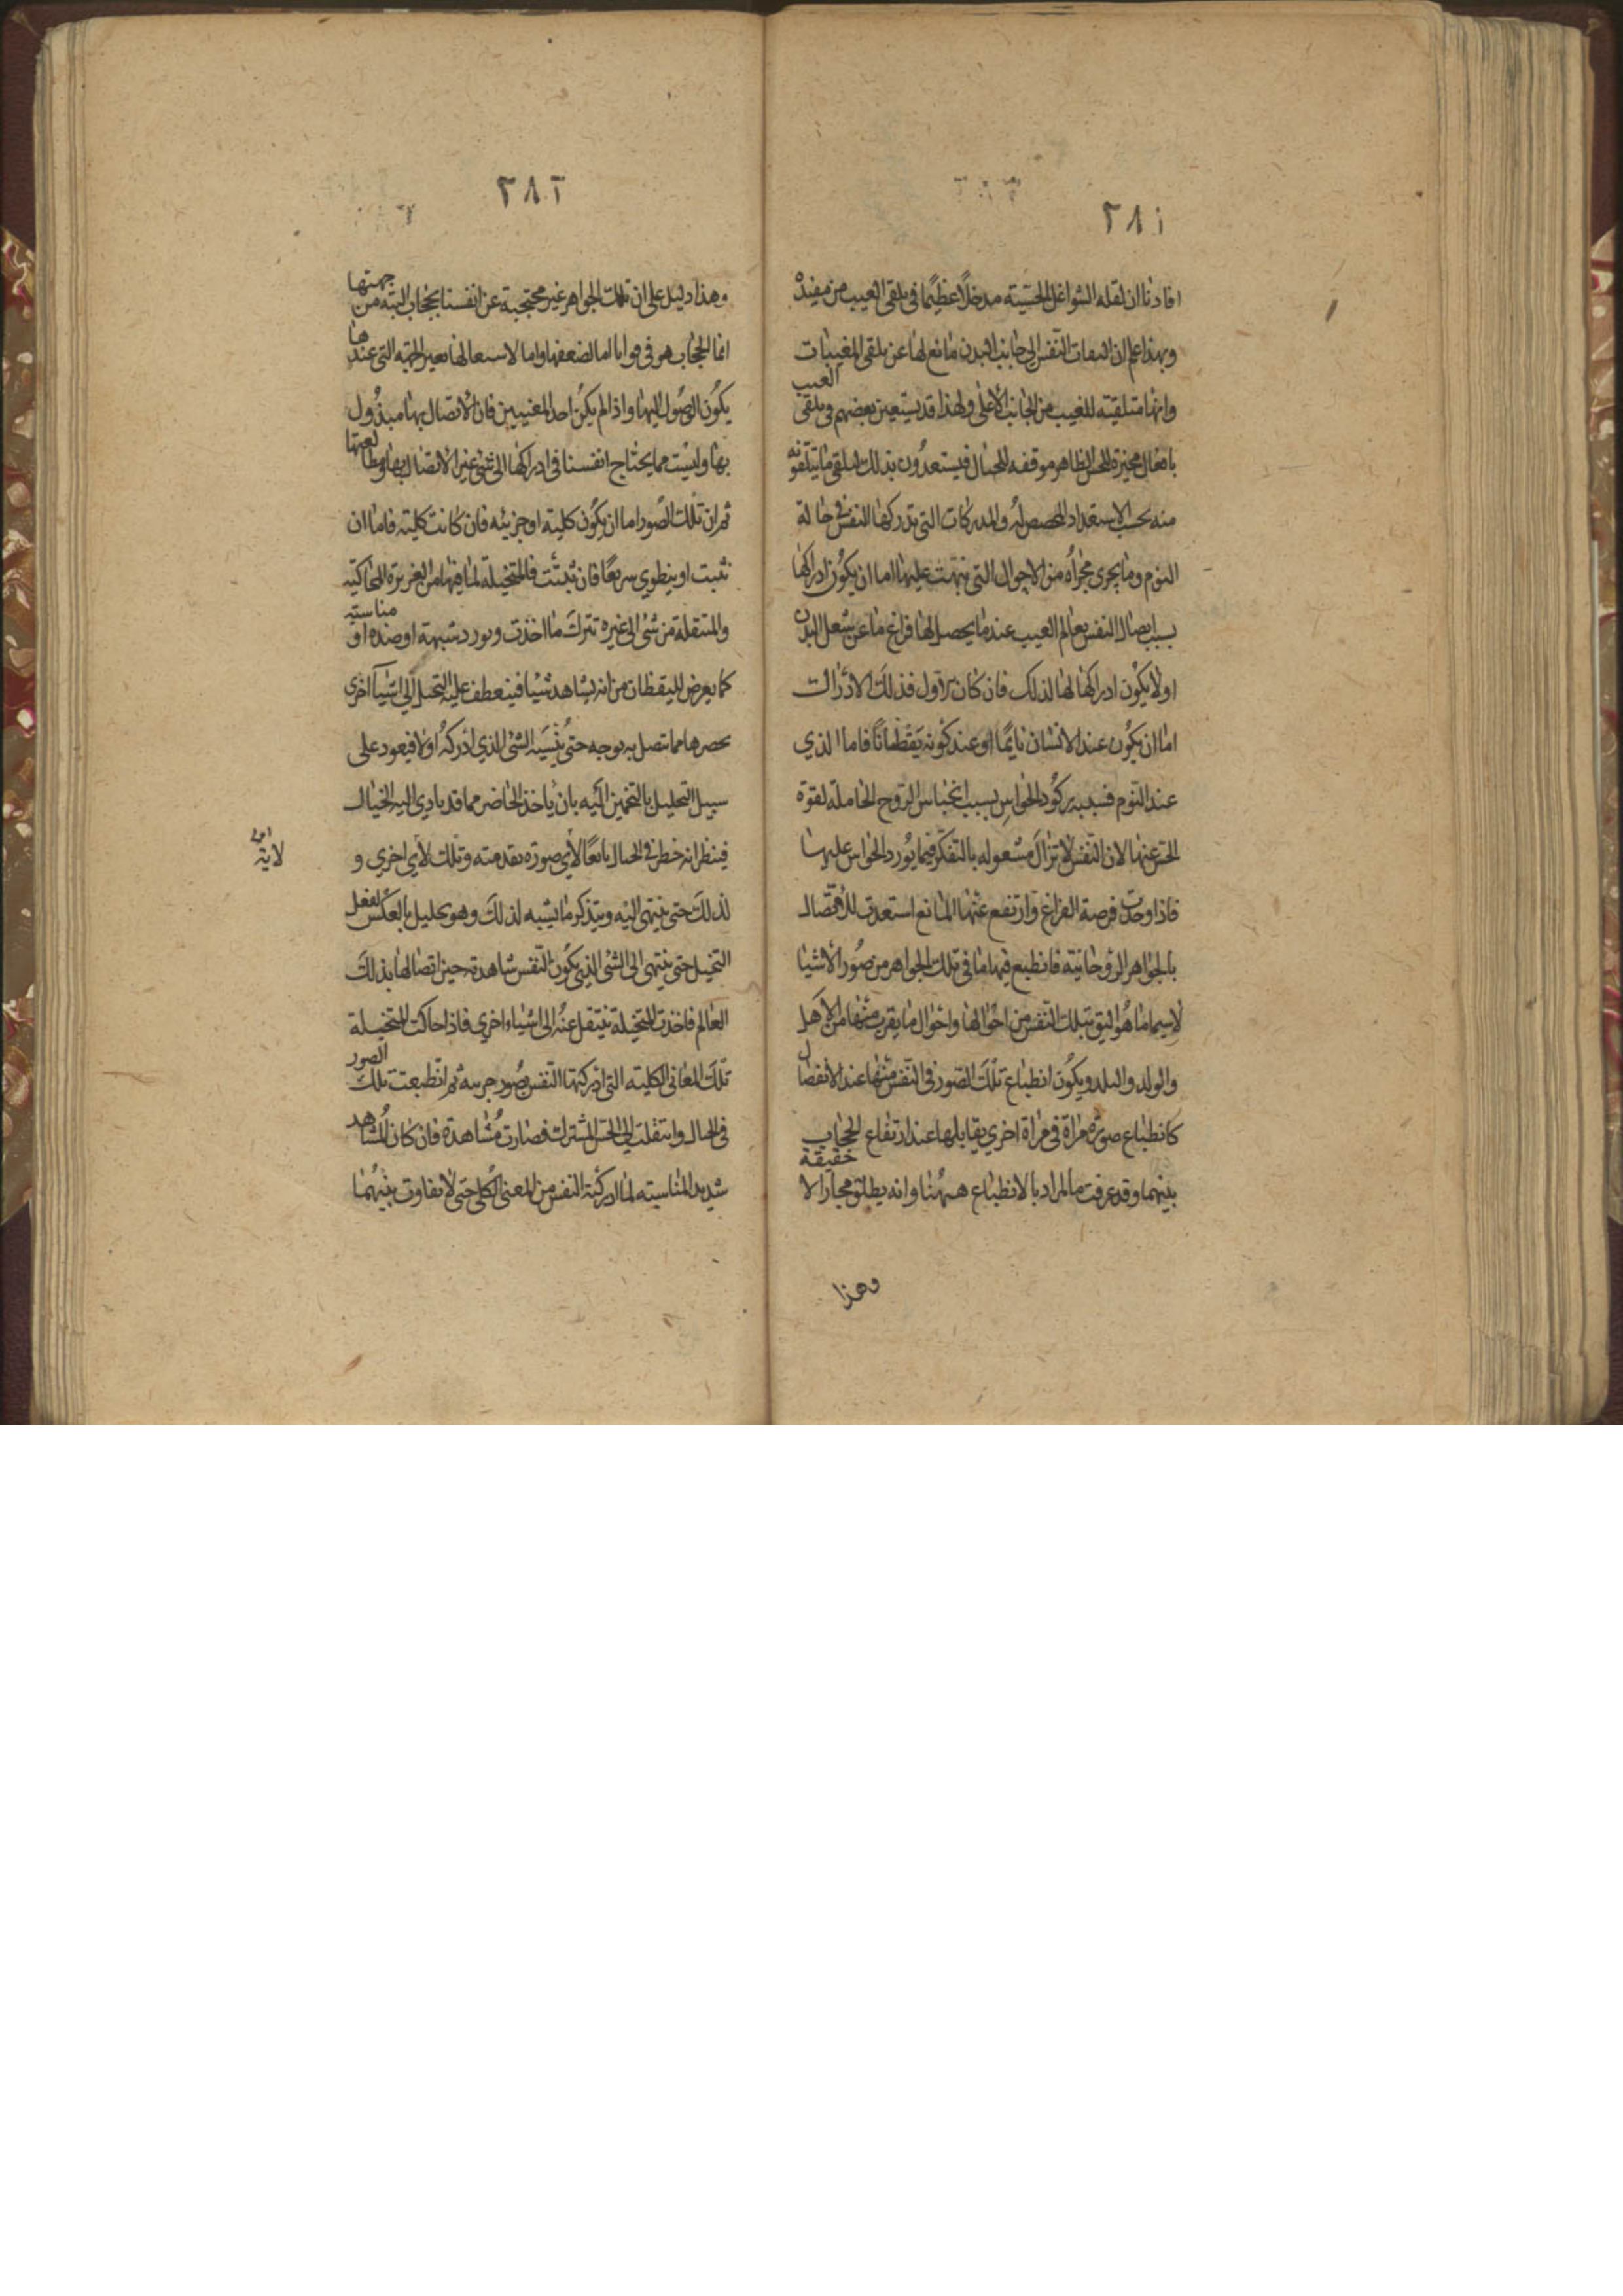 ٢٨١
افادنا ان لقله الشواغل الحسّيته مدخلًا عظيمًا فى تلقى الغيب من مفيده
وبهذا علم ان التفات النفس الى جانب البدن مانع لها عن تلقى المغيبات
وانها متلقيته للغيب من الجانب الأعلى ولهذا قد يستعين بعضهم فى تلقى الغيب
بافعال محيّرة للحس الظاهر موقفه للخيال فيستعدّون بذلك لتلقى ما يتلقونه
منه بحسب الاستعداد المخصص له والمدركات التى تدركها النفس فى حالة
النوم وما يجرى مجراه من الاحوال التى نبهت عليها اما ان يكون ادراكها
بسبب اتصال النفس بعالم الغيب عندما يحصل لها فراغ ما عن شغل البدن
اولا يكون ادراكها لها لذلك فان كان الأول فذلك الادراك
اما ان يكون عند الانسان نايمًا او عند كونه يقظانًا فاما الذي
عند النوم فسببه ركود الحواس بسبب انحباس الروح الحاملة لقوة
الحس عنها لان النفس لا تزال مشغوله بالتفكر فيما يورد الحواس عليها
فاذا وجدت فرصة الفراغ وارتفع عنها المانع استعدت للاتصال
بالجواهر الروحانيته فانطبع فيها ما فى تلك الجواهر من صور الاشيا
لاسيما ما هو اليق بتلك النفس من احوالها واحوال ما يقرب منها من الاهل
والولد والبلد ويكون انطباع تلك الصور فى النفس منها عند الاتصال
كانطباع صورة مرآة فى مرآة اخري يقابلها عند ارتفاع الحجاب
بينهما وقد عرفت ما المراد بالانطباع ههنا وانه يطلق مجازا لا حقيقة
وهذا
٢٨٢
وهذا دليل على ان تلك الجواهر غير محتجبة عن انفسنا بحجاب البته من جهتها
انما الحجاب هو فى قوانا اما لضعفها واما لاشتغالها بغير الجهة التى عندها
يكون الوصول اليها واذا لم يكن احد المعنيين فان الاتصال بها مبذول
بها وليست مما يحتاج انفسنا فى ادراكها الى شى غير الاتصال بها ومطالعتها
ثم ان تلك الصور اما ان يكون كليته او جزيئه فان كانت كليته فاما ان
تثبت او ينطوي سريعًا فان ثبتت فالمتخيلة لما فيها من الغريزة المحاكيته
والمنتقلة من شى الى غيره تترك ما اخذت وتورد شبهته او ضده او مناسبته
كما يعرض لليقظان من انه يشاهد شيئا فينعطف عليه التخيل الى اشيآ اخرى
يحضرها مما تتصل به بوجه حتى ينسيه الشى الذي ادركه اولا فيعود على
سبيل التحليل بالتخمين اليه بان ياخذ الحاضر مما قد تادى اليه الخيال
فينظر انه خطر فى الخيال تابعًا لأي صورة تقدمته وتلك لأي اخري و
لاية
لذلك حتى ينتهى اليه ويتذكر ما يشبه لذلك وهو تحليل بالعكس لفعل
التخيل حتى ينتهى الى الشى الذي يكون النفس شاهدته حين اتصالها بذلك
العالم فاخذت المتخيلة ينتقل عنه الى اشياء اخري فاذا حاكت المتخيلة
تلك المعانى الكليته التى ادركتها النفس بصور جزييه ثم انطبعت تلك الصور
فى الخيال وانتقلت الى الحس المشترك فصارت مشاهدة فان كان المشاهد
شديد المناسبته لما ادركته النفس من المعنى الكلى حتى لا تفاوت بينهما